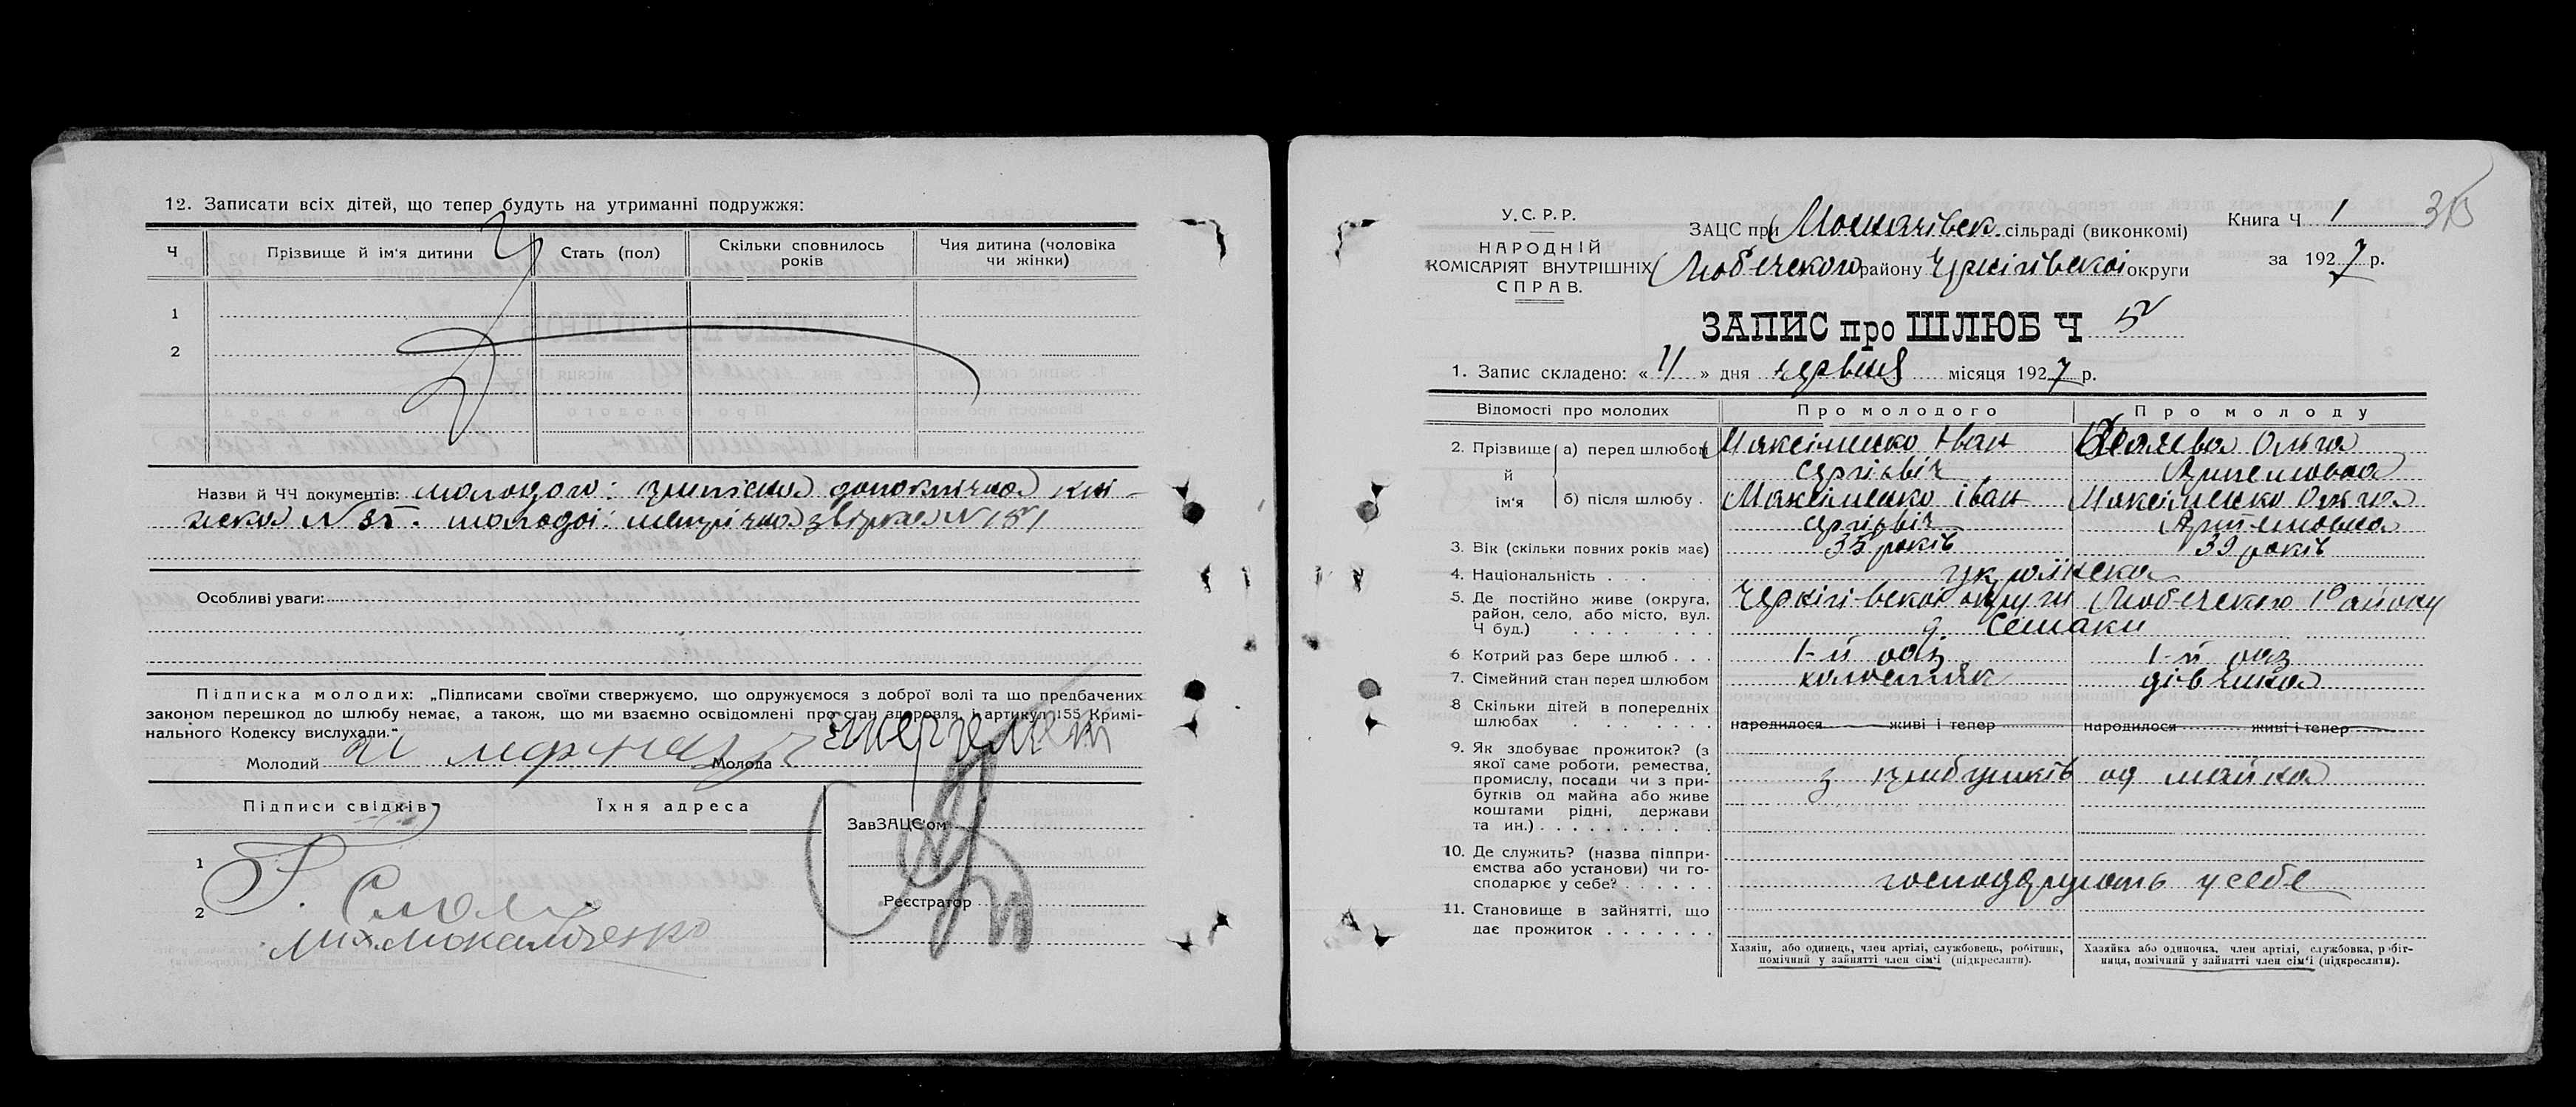 12. Записати всіх дітей, що тепер будуть на утриманні подружжя:
Ч Прізвище й ім'я дитини Стать (пол) Скільки сповнилось років Чия дитина (чоловіка чи жінки)
1
2
Назви й ЧЧ документів: молодого: приписна допоклична кни-
жска N 35. молодої: метрична звірка N 151
Особливі уваги:
Підписка молодих: „Підписами своїми ствержуємо, що одружуємося з доброї волі та що предбачених
законом перешкод до шлюбу немає, а також, що ми взаємно освідомлені про стан здоровля і артикул 155 Кримі-
нального Кодексу вислухали."
Молодий Молода
Підписи свідків Їхня адреса
ЗавЗАЦС'ом
1
Реєстратор
2
У.С.Р.Р.
НАРОДНІЙ
КОМІСАРІЯТ ВНУТРІШНІХ
СПРАВ.
ЗАЦС при сільраді (виконкомі)
Любечского району Чернігівскої округи
Книга Ч 1
за 1927 р.
ЗАПИС про ШЛЮБ Ч 52
1. Запис складено: « 11 » дня червня місяця 1927 р.
Відомості про молодих Про молодого Про молоду
2. Прізвище й ім'я а) перед шлюбом Максіменко Іван Ольга
Сергієвіч Артемовна
б) після шлюбу . Максіменко Іван Максіменко Ольга
Сергієвіч Артемовна
3. Вік (скільки повних років має) 35 років 39 років
4. Національність . . . українска
5. Де постійно живе (округа, Чернігівскої округи Любечского Району
район, село, або місто, вул.
Ч буд.) . . . . . . . . Семаки
6. Котрий раз бере шлюб . . . 1-й раз 1-й раз
7. Сімейний стан перед шлюбом холостяк дівчина
8 Скільки дітей в попередніх
шлюбах . . . . . . . народилося живі і тепер народилося живі і тепер
9. Як здобуває прожиток? (з
якої саме роботи, ремества,
промислу, посади чи з при- з прибутків од майна
бутків од майна або живе
коштами рідні, держави
та ин.) . . . . . . . . .
10. Де служить? (назва підпри-
ємства або установи) чи го-
сподарює у себе? . . . . . . господарують у себе
11. Становище в зайнятті, що
дає прожиток . . . . . . .
Хазяін, або одинець, член артілі, службовець, робітник, Хазяйка або одиночка, член артілі, службовка, робіт-
помічний у зайнятті член сім'ї (підкреслити). ниця, помічний у зайнятті член сім'ї (підкреслити).